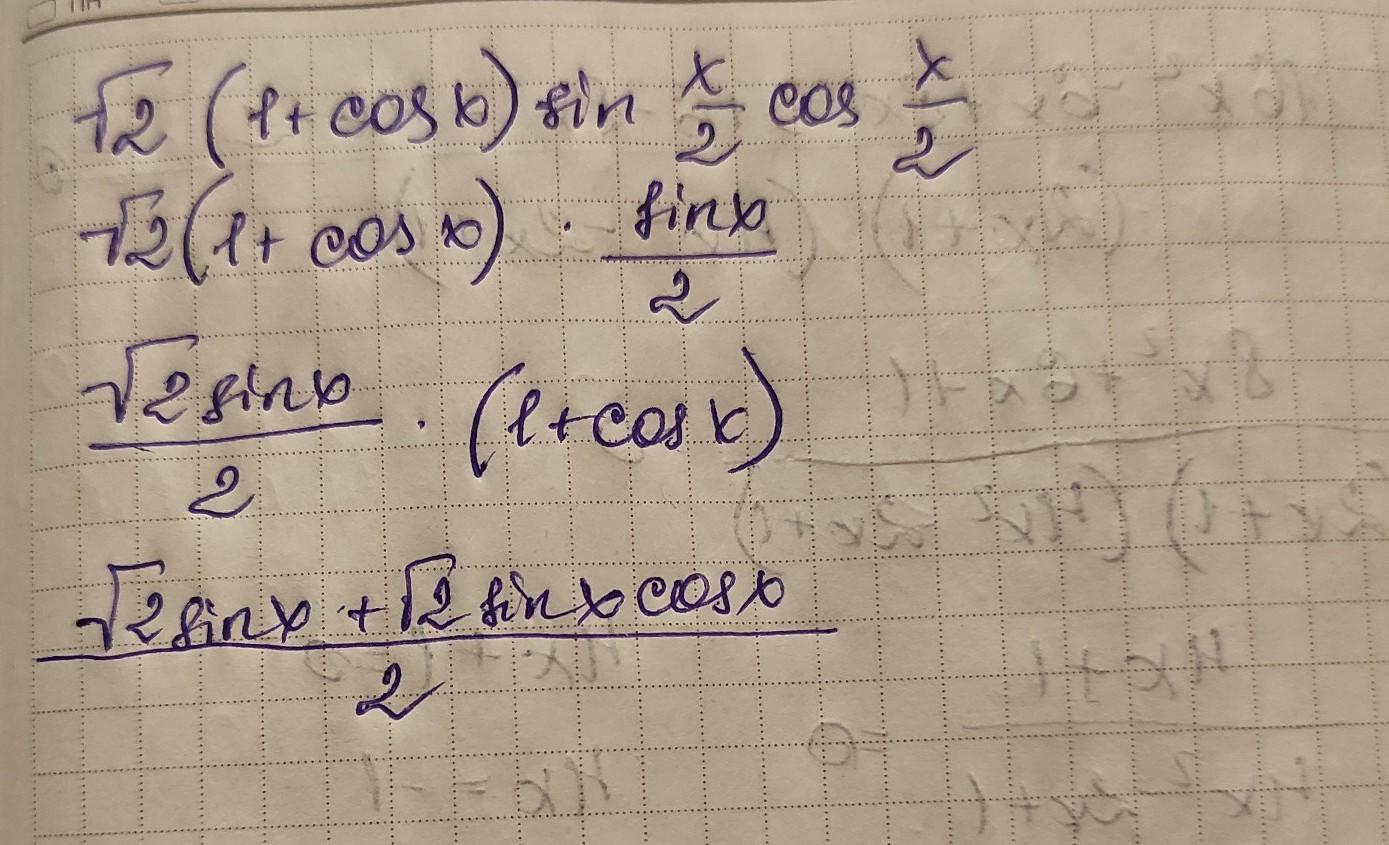 √2 (1 + cos x) sin x/2 cos x/2
√2 (1 + cos x) · sin x / 2
√2 sin x / 2 · (1 + cos x)
√2 sin x + √2 sin x cos x / 2